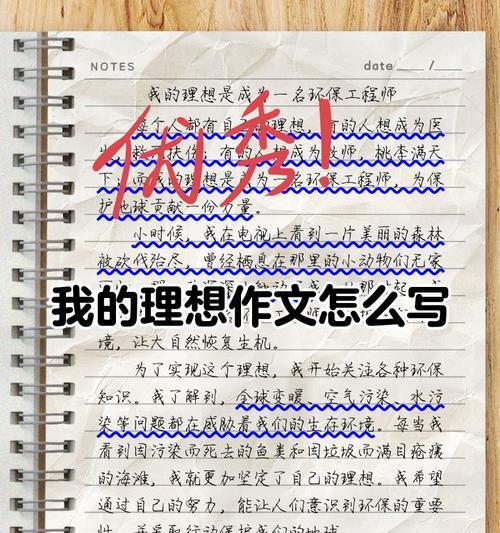 NOTES
date ___ / ___
我的理想是成为一名环保工程师
优秀!
每个人都有自 的理想,有的人想成为医
生 扶伤;有的 想成为 师,桃李满天
下;而我的理想是 为一名环保工程师,为保
护地球贡献一份力量。
小时候,我在电视上看到一片美丽的森林
被砍伐殆尽,曾经栖息在那里的小动物们无家
我的理想作文怎么写
境,让大自然恢复生机。
为了实现这个理想,我开始关注各种环保
知识。我了解到,全球变暖、空气污染、水污
染等问题都在威胁着我们的生存环境。每当我
看到因污染而死去的鱼类和因垃圾而满目疮痍
的海滩,我就更加坚定了自己的理想。我希望
通过自己的努力,能让人们意识到环保的重要
性,并采取行动保护我们的地球